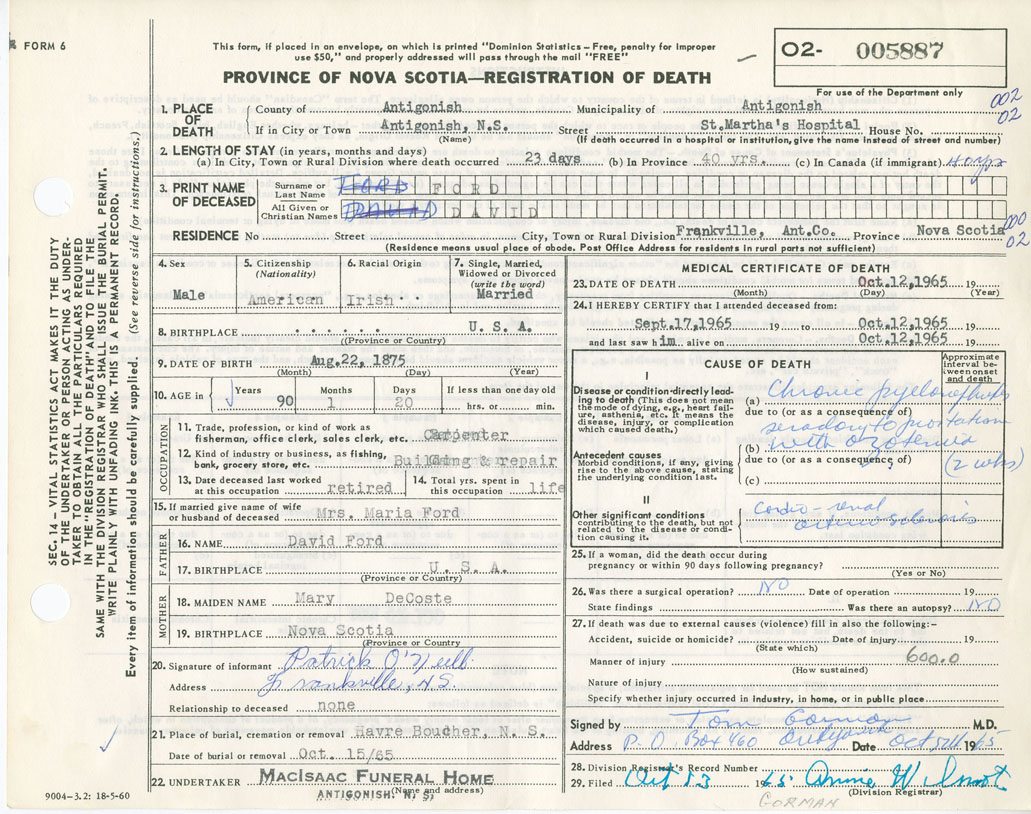 FORM 6
This form, if placed in an envelope, on which is printed "Dominion Statistics – Free, penalty for improper
use $50," and properly addressed will pass through the mail "FREE"
O2- 005887
For use of the Department only
PROVINCE OF NOVA SCOTIA—REGISTRATION OF DEATH
002
02
1. PLACE OF DEATH
County of Antigonish Municipality of Antigonish
If in City or Town Antigonish, N.S. Street St.Martha's Hospital House No.
(Name) (If death occurred in a hospital or institution, give the name instead of street and number)
2. LENGTH OF STAY (in years, months and days)
(a) In City, Town or Rural Division where death occurred 23 days (b) In Province 40 yrs. (c) In Canada (if immigrant) 40 yrs
3. PRINT NAME OF DECEASED
Surname or Last Name FORD FORD
All Given or Christian Names DAVID DAVID
000
02
RESIDENCE No Street City, Town or Rural Division Frankville, Ant.Co. Province Nova Scotia
(Residence means usual place of abode. Post Office Address for residents in rural parts not sufficient)
4. Sex Male
5. Citizenship (Nationality) American
6. Racial Origin Irish
7. Single, Married, Widowed or Divorced (write the word) Married
8. BIRTHPLACE U. S. A.
(Province or Country)
9. DATE OF BIRTH Aug.22, 1875
(Month) (Day) (Year)
10. AGE in Years 90 Months 1 Days 20 If less than one day old hrs. or min.
OCCUPATION
11. Trade, profession, or kind of work as
fisherman, office clerk, sales clerk, etc. Carpenter
12. Kind of industry or business, as fishing,
bank, grocery store, etc. Building & repair
13. Date deceased last worked at this occupation retired
14. Total yrs. spent in this occupation life
15. If married give name of wife or husband of deceased Mrs. Maria Ford
FATHER
16. NAME David Ford
17. BIRTHPLACE U. S. A.
(Province or Country)
MOTHER
18. MAIDEN NAME Mary DeCoste
19. BIRTHPLACE Nova Scotia
(Province or Country
20. Signature of informant Patrick O'Neill
Address Frankville, N.S.
Relationship to deceased none
21. Place of burial, cremation or removal Havre Boucher, N. S.
Date of burial or removal Oct. 15/65
22. UNDERTAKER MACISAAC FUNERAL HOME
(Name and address)
ANTIGONISH, N. S.
MEDICAL CERTIFICATE OF DEATH
23. DATE OF DEATH Oct.12,1965 19
(Month) (Day) (Year)
24. I HEREBY CERTIFY that I attended deceased from:
Sept.17,1965 19 to Oct.12,1965
and last saw him alive on Oct.12,1965 19
CAUSE OF DEATH
Approximate interval between onset and death
I
Disease or condition directly leading to death (This does not mean the mode of dying, e.g., heart failure, asthenia, etc. It means the disease, injury, or complication which caused death.)
(a) Chronic
due to (or as a consequence of)
(b) with
due to (or as a consequence of)
(c)
(2 wks)
Antecedent causes
Morbid conditions, if any, giving rise to the above cause, stating the underlying condition last.
II
Other significant conditions
contributing to the death, but not related to the disease or condition causing it.
arteriosclerosis
25. If a woman, did the death occur during
pregnancy or within 90 days following pregnancy?
(Yes or No)
26. Was there a surgical operation? NO Date of operation 19
State findings Was there an autopsy? NO
27. If death was due to external causes (violence) fill in also the following:–
Accident, suicide or homicide? Date of injury 19
(State which)
Manner of injury 600.0
(How sustained)
Nature of injury
Specify whether injury occurred in industry, in home, or in public place
Signed by Tom Gorman M.D.
Address P.O. Box 460 Antigonish Date Oct 1965
28. Division Registrar's Record Number
29. Filed Oct 13 1965 Annie
(Division Registrar)
GORMAN
9004–3.2: 18-5-60
SEC. 14 – VITAL STATISTICS ACT MAKES IT THE DUTY
OF THE UNDERTAKER OR PERSON ACTING AS UNDER-
TAKER TO OBTAIN ALL THE PARTICULARS REQUIRED
IN THE "REGISTRATION OF DEATH" AND TO FILE THE
SAME WITH THE DIVISION REGISTRAR WHO SHALL ISSUE THE BURIAL PERMIT.
WRITE PLAINLY WITH UNFADING INK. THIS IS A PERMANENT RECORD.
Every item of information should be carefully supplied. (See reverse side for instructions.)